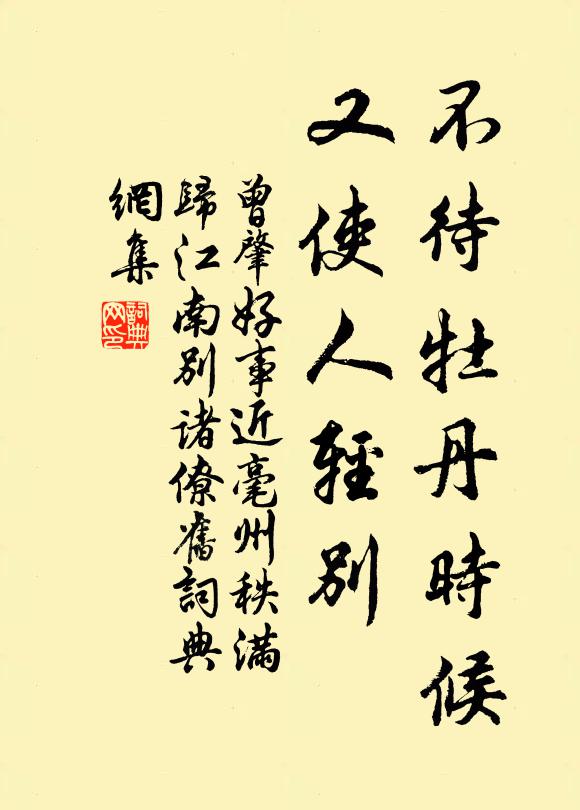 不待牡丹時候
又使人輕別
曾肇好事近毫州秩滿
歸江南別诸僚舊詞典
網集
詞典
网印